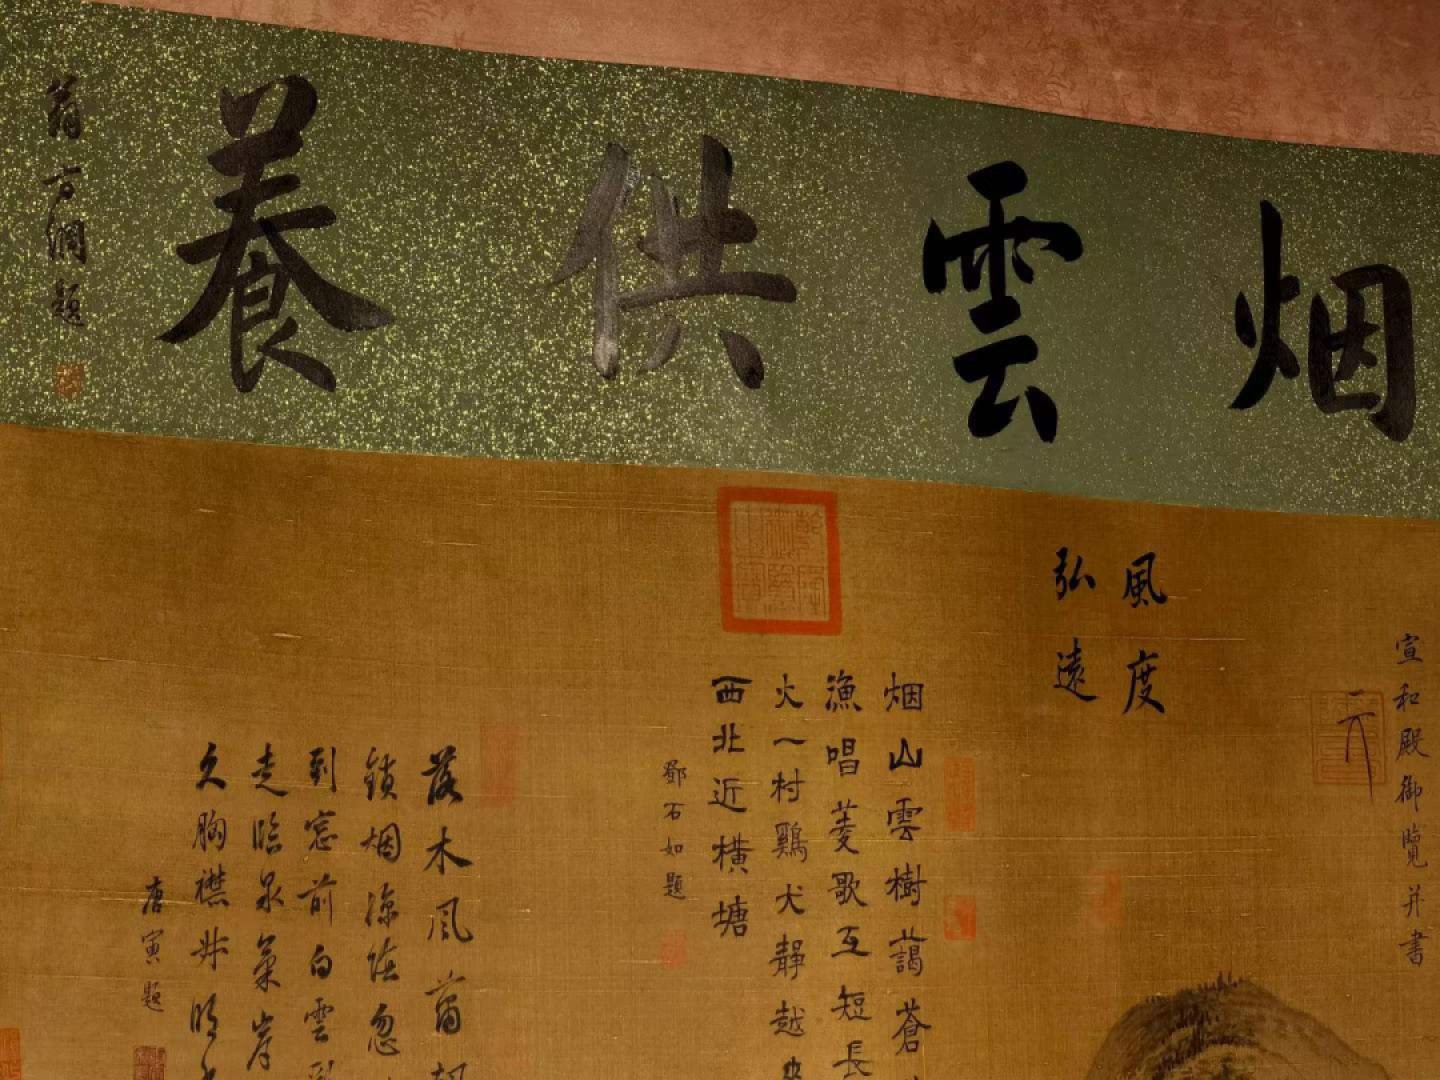 烟雲供養
翁方綱題
宣和殿御覽并書
風度
弘遠
烟山雲樹藹蒼
漁唱菱歌互短長
火一村鷄犬靜越
西北近橫塘
鄧石如題
落木風
鎖烟
到窓前白雲
走臨泉
久胸襟
唐寅題